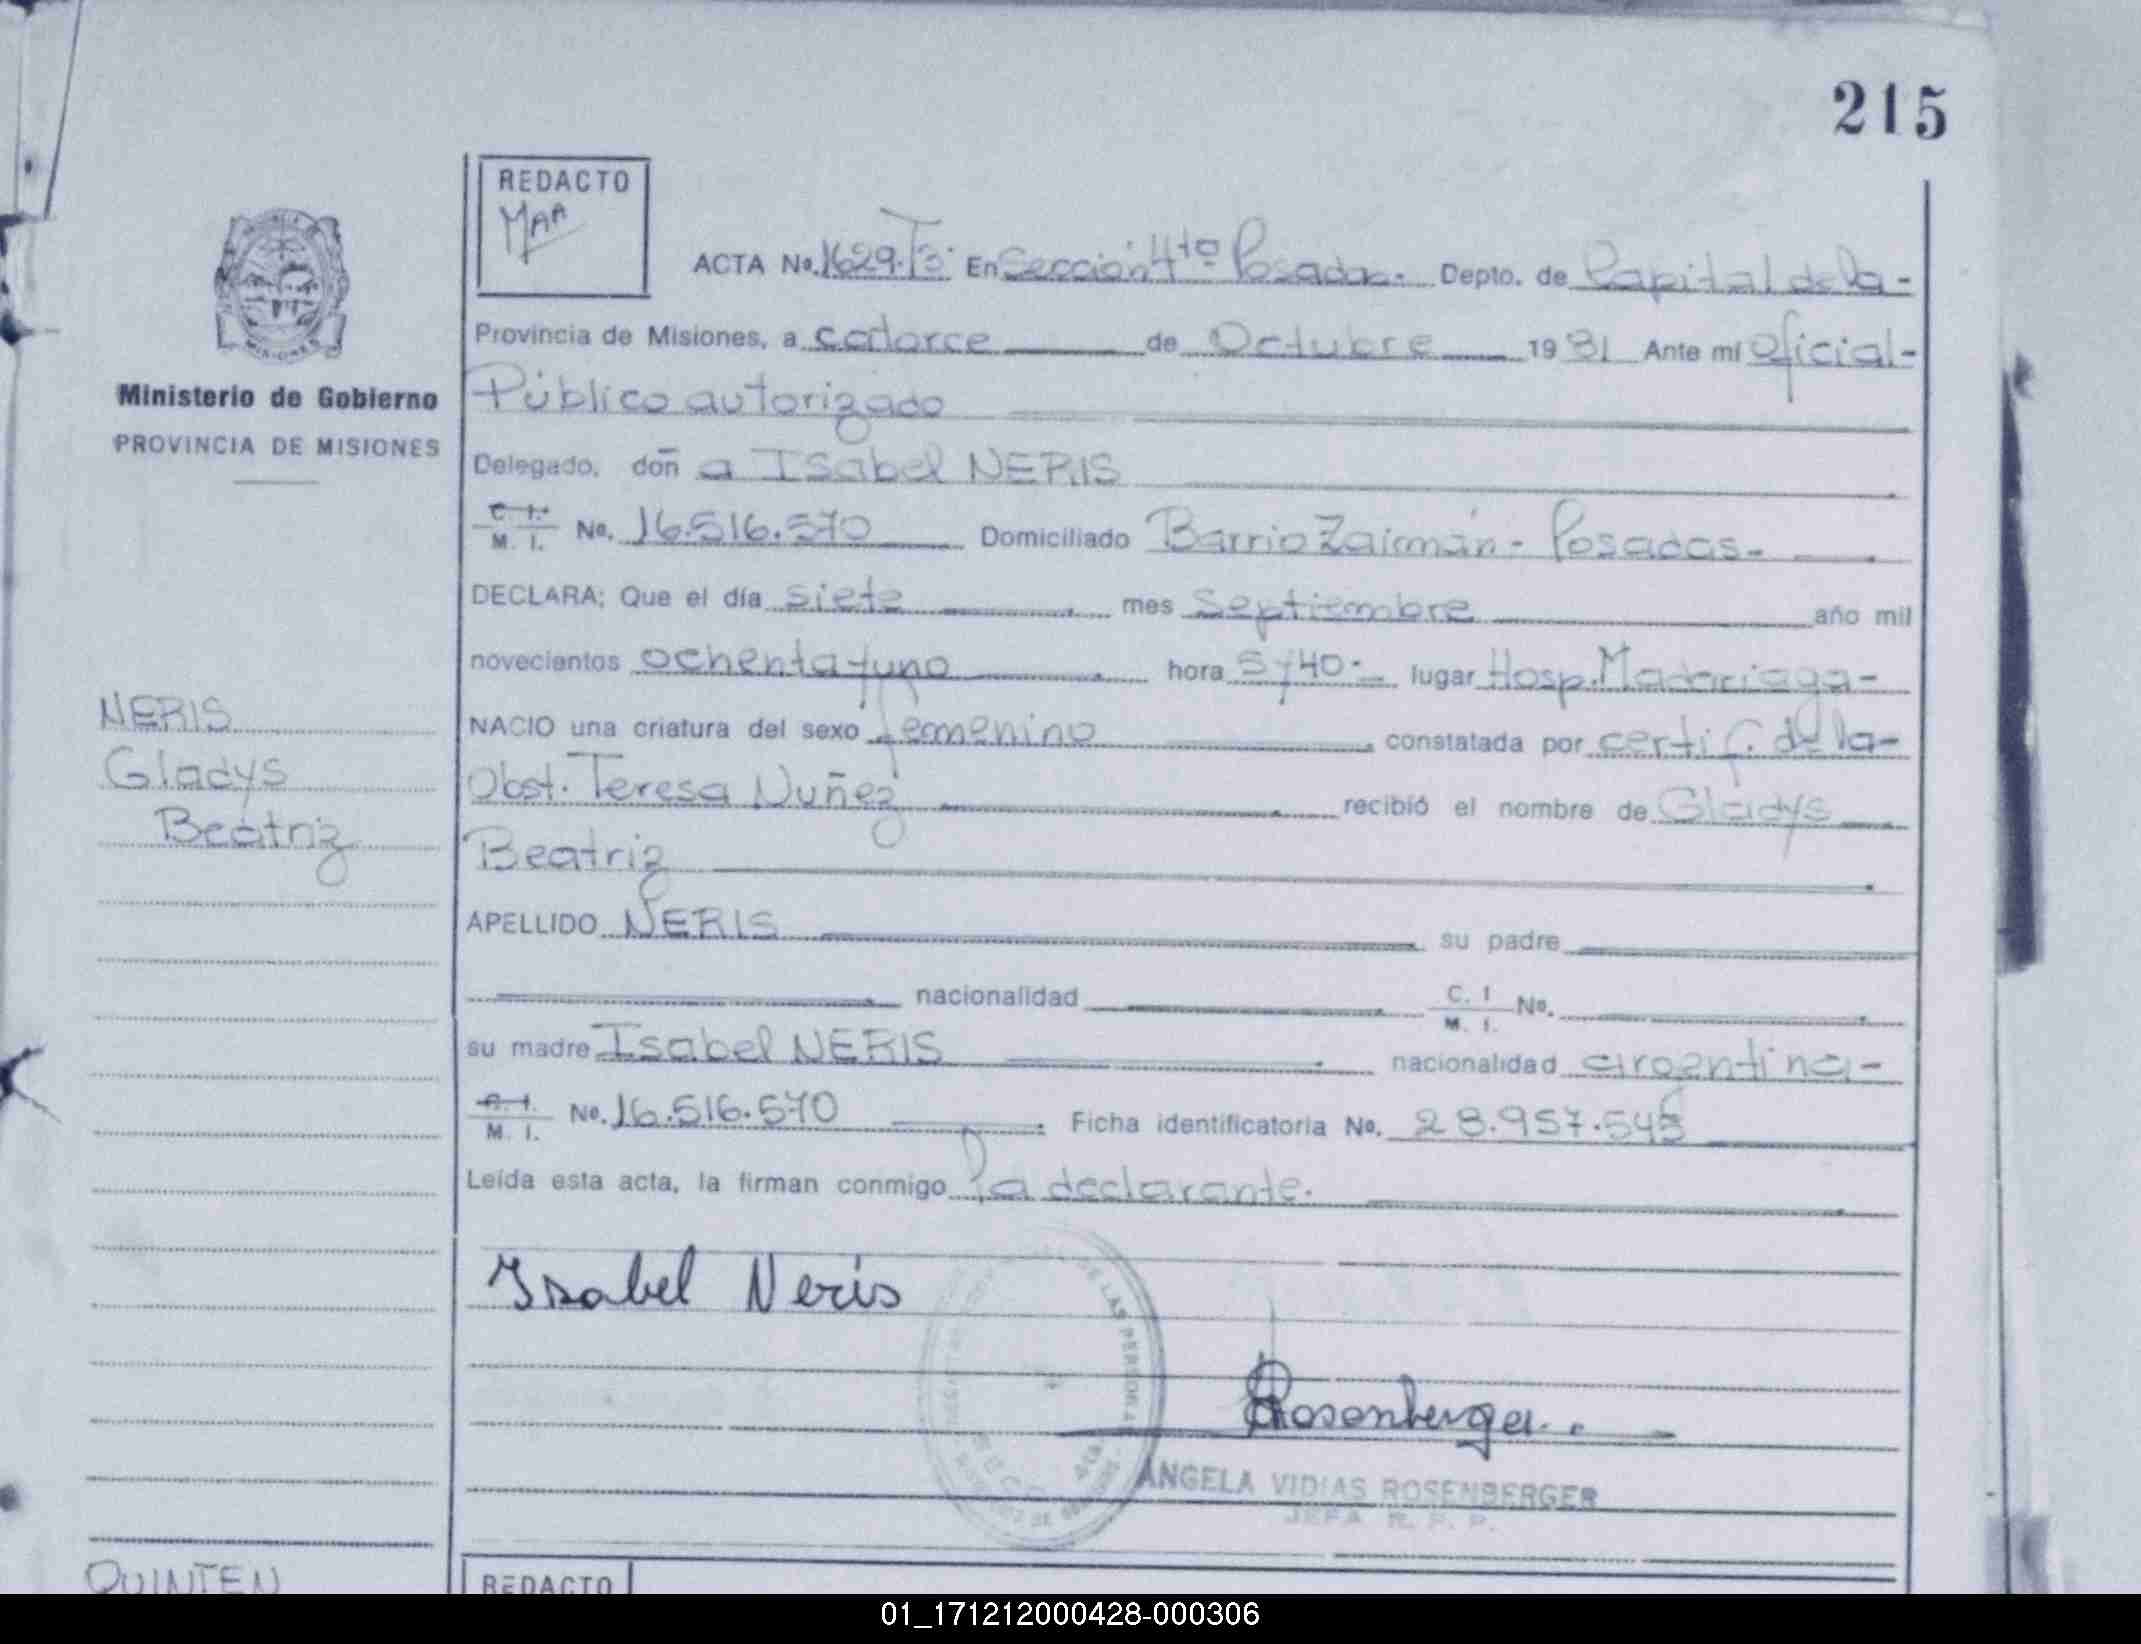 215
REDACTO
MAA
ACTA No. 1629.Tº3. En Sección 4ta Posadas. Depto. de Capital de la-
Provincia de Misiones, a catorce de Octubre 1981 Ante mí Oficial-
Público autorizado
Delegado, doñ a Isabel NERIS
C. I.
M. I. No. 16.516.570 Domiciliado Barrio Zaimán - Posadas-
DECLARA: Que el día siete mes Septiembre año mil
novecientos ochenta y uno hora 5 y 40- lugar Hosp. Madariaga-
NACIO una criatura del sexo femenino constatada por certif. de la-
Obst. Teresa Nuñez recibió el nombre de Gladys
Beatriz
APELLIDO NERIS su padre
nacionalidad C. I
M. I. No.
su madre Isabel NERIS nacionalidad argentina-
C. I.
M. I. No. 16.516.570 Ficha identificatoria No. 28.957.545
Leída esta acta, la firman conmigo la declarante.
Isabel Neris
DE LAS PERSONAS
Rosenberger
ANGELA VIDIAS ROSENBERGER
JEFA R. P. P.
MISIONES
Ministerio de Gobierno
PROVINCIA DE MISIONES
NERIS
Gladys
Beatriz
QUINTEN
REDACTO
01_171212000428-000306